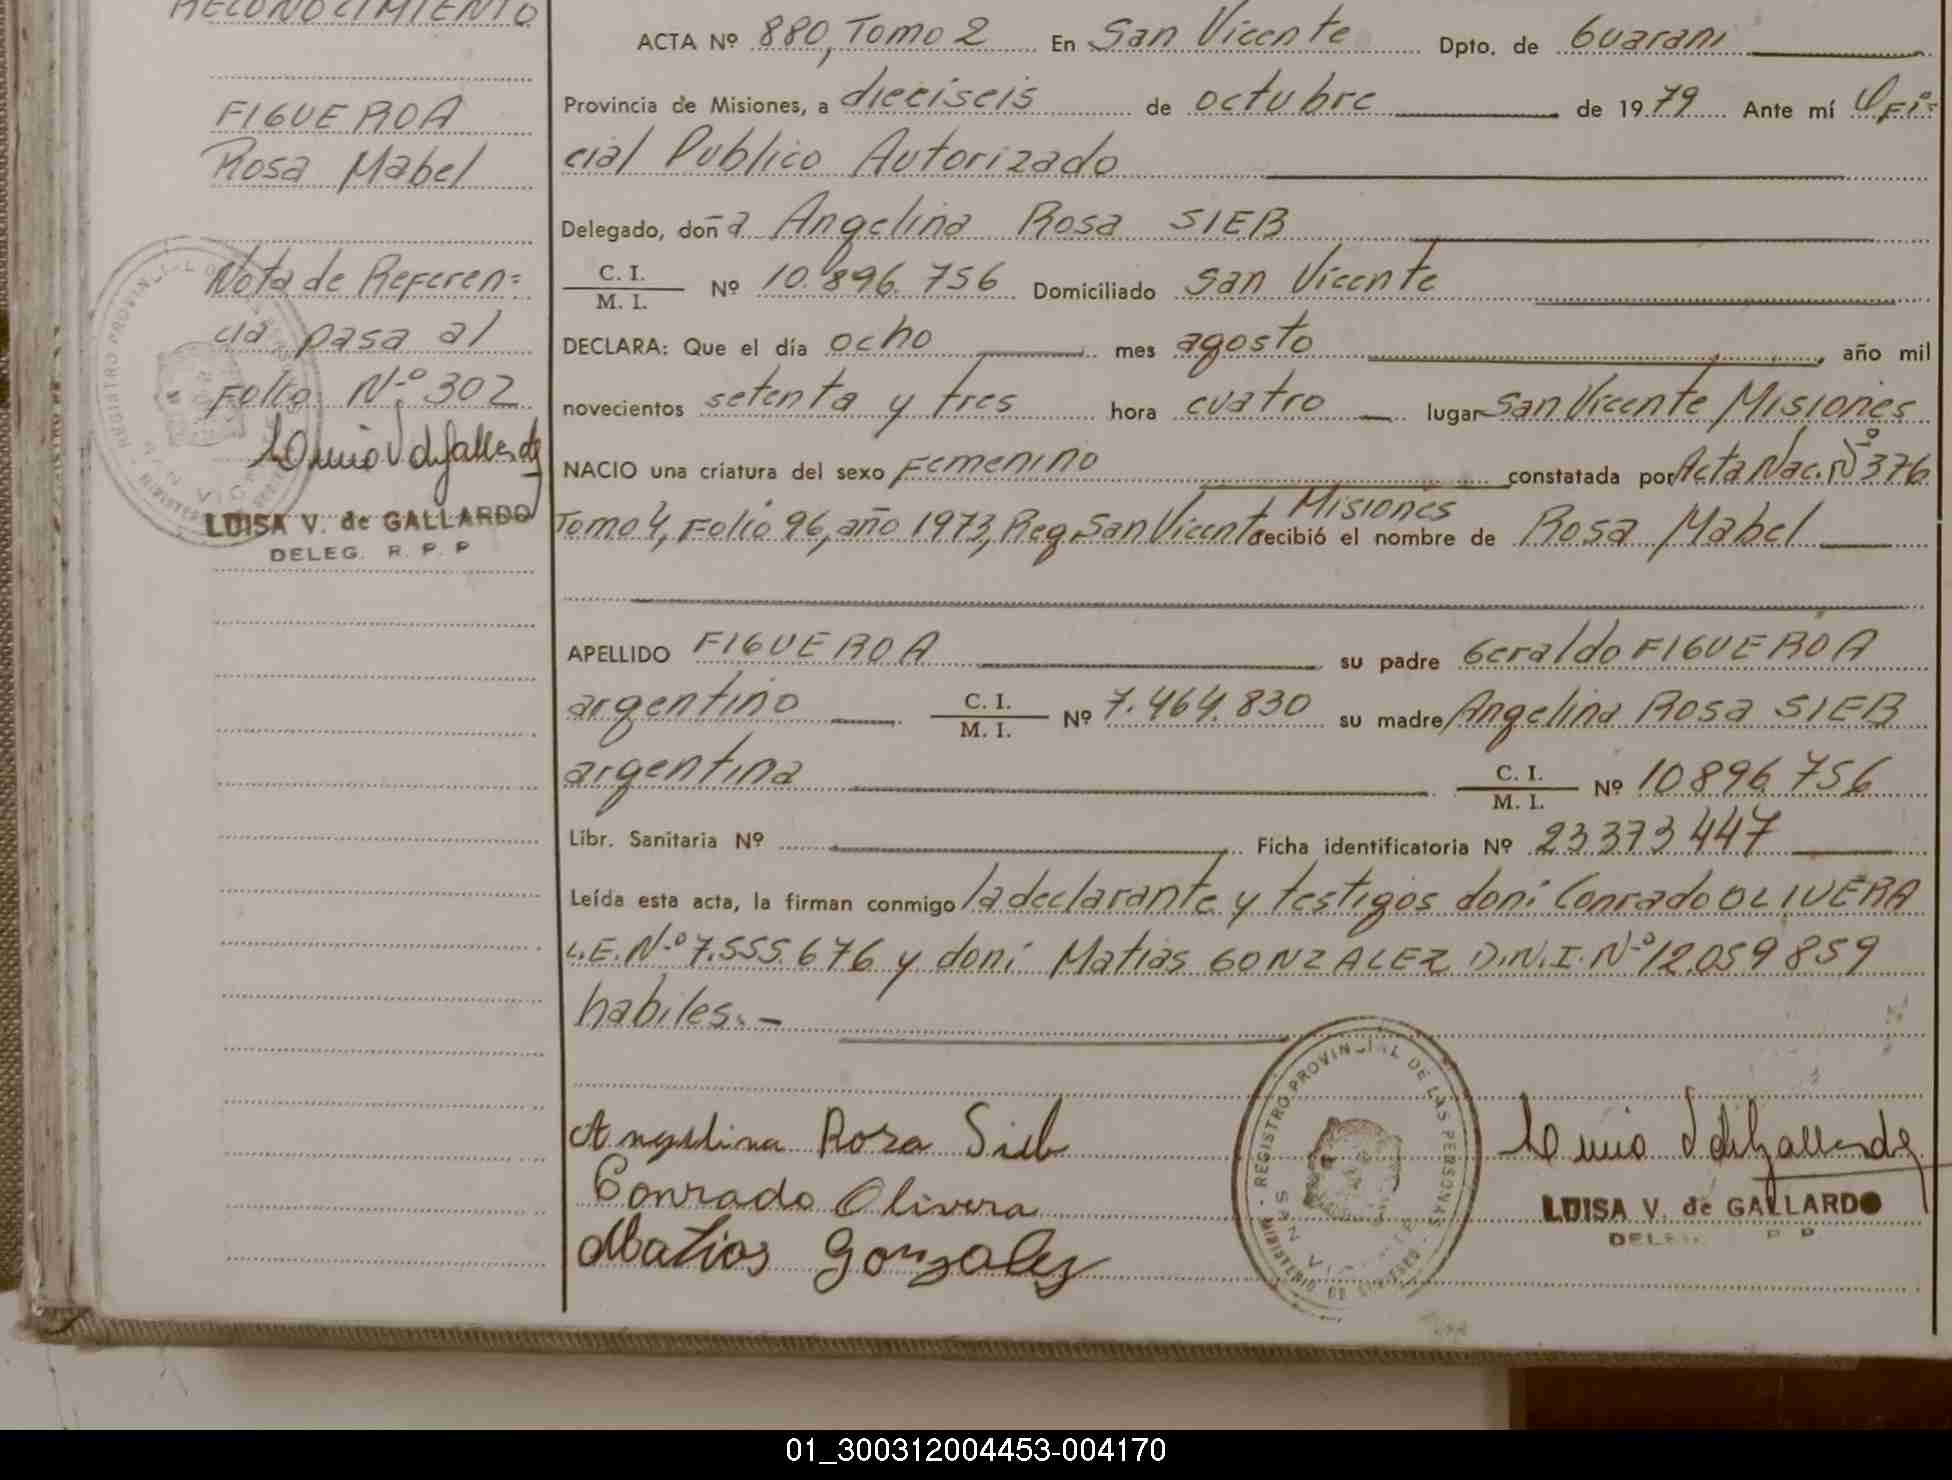 RECONOCIMIENTO
FIGUEROA
Rosa Mabel
Nota de Referen-
cia pasa al
Folio N.º 302
LUISA V. de GALLARDO
DELEG. R. P. P
ACTA Nº 880, Tomo 2 En San Vicente Dpto. de Guarani
Provincia de Misiones, a dieciseis de octubre de 1979 Ante mí Ofi-
cial Publico Autorizado
Delegado, doña Angelina Rosa SIEB
C. I. / M. I. Nº 10.896.756 Domiciliado San Vicente
DECLARA: Que el día ocho mes agosto, año mil
novecientos setenta y tres hora cuatro lugar San Vicente Misiones
NACIO una criatura del sexo Femenino constatada por Acta Nac. Nº 376
Misiones
Tomo 4, Folio 96, año 1973, Reg. San Vicente recibió el nombre de Rosa Mabel
APELLIDO FIGUEROA su padre Geraldo FIGUEROA
argentino C. I. / M. I. Nº 7.464.830 su madre Angelina Rosa SIEB
argentina C. I. / M. I. Nº 10896756
Libr. Sanitaria Nº Ficha identificatoria Nº 23373447
Leída esta acta, la firman conmigo la declarante y testigos doni Conrado OLIVERA
L.E. N.º 7.555.676 y doni Matias GONZALEZ D.N.I. N.º 12.059859
habiles.-
Angelina Rosa Sieb
Conrado Olivera
Matias Gonzalez
REGISTRO PROVINCIAL DE LAS PERSONAS
LUISA V. de GALLARDO
01_300312004453-004170